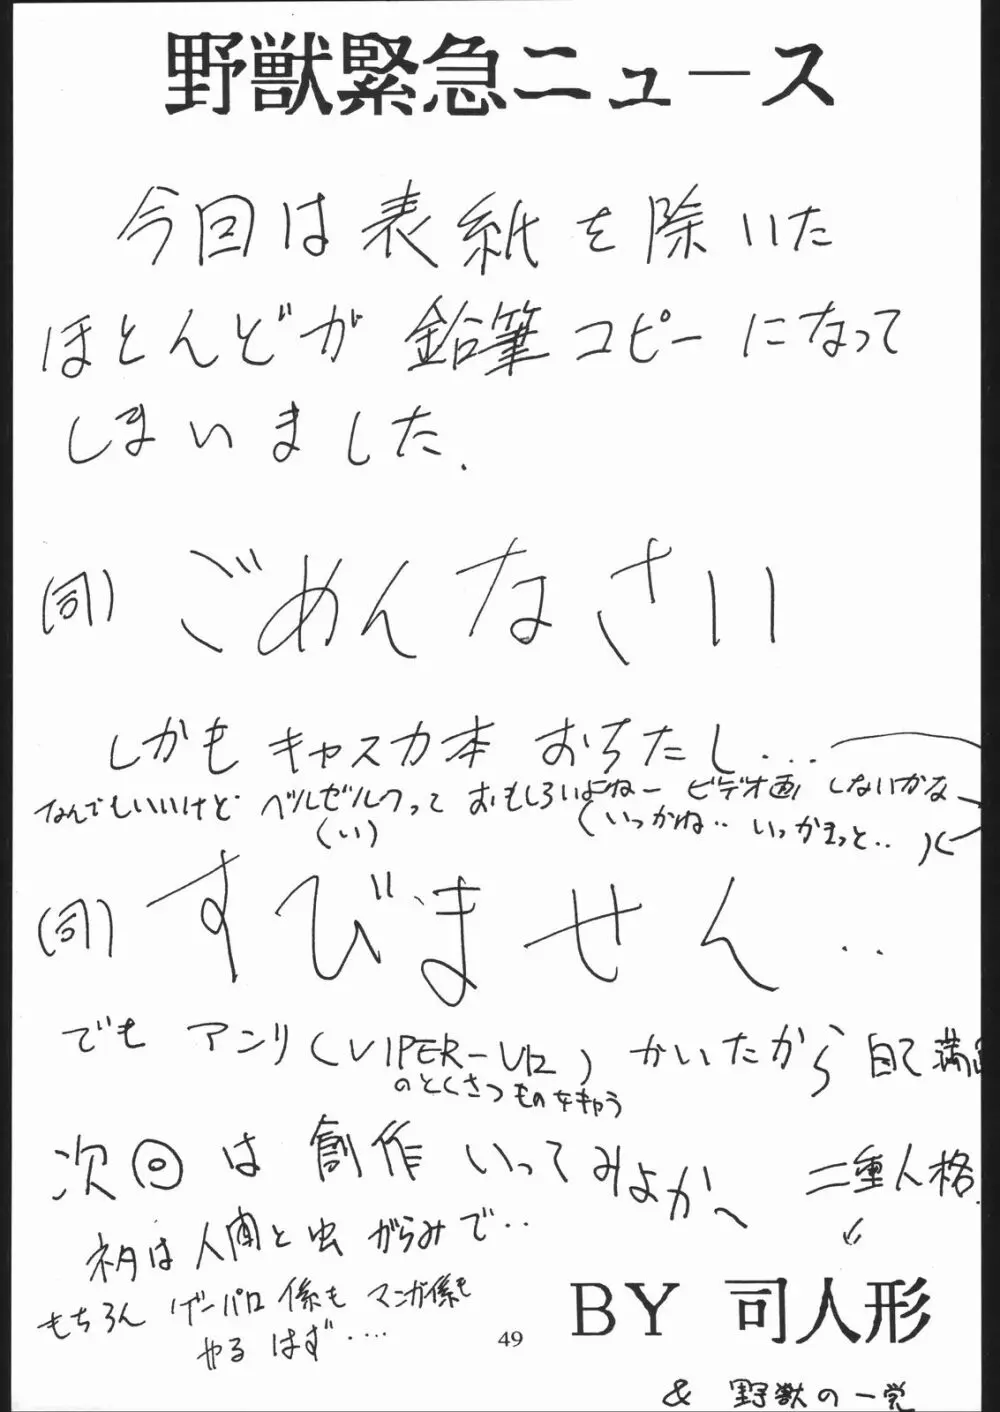 野獣緊急ニュース
今回は表紙を除いた
ほとんどが鉛筆コピーになって
しまいました.
(司) ごめんなさい
しかもキャスカ本おちたし...
なんでもいいけどベルゼルクっておもしろいよねー ビデオ画しないかな
(い) (いっかね‥ いっかまっと‥)
(司) すびません‥
でも アンリ(VIPER-V12) かいたから 自己満足
のとくさつものをキャラ
次回は創作いってみよかへ 二重人格.
初は人間と虫がらみで‥
もちろん ゲーパロ係も マンガ係も
やる はず....
BY 司人形
49
& 野獣の一党